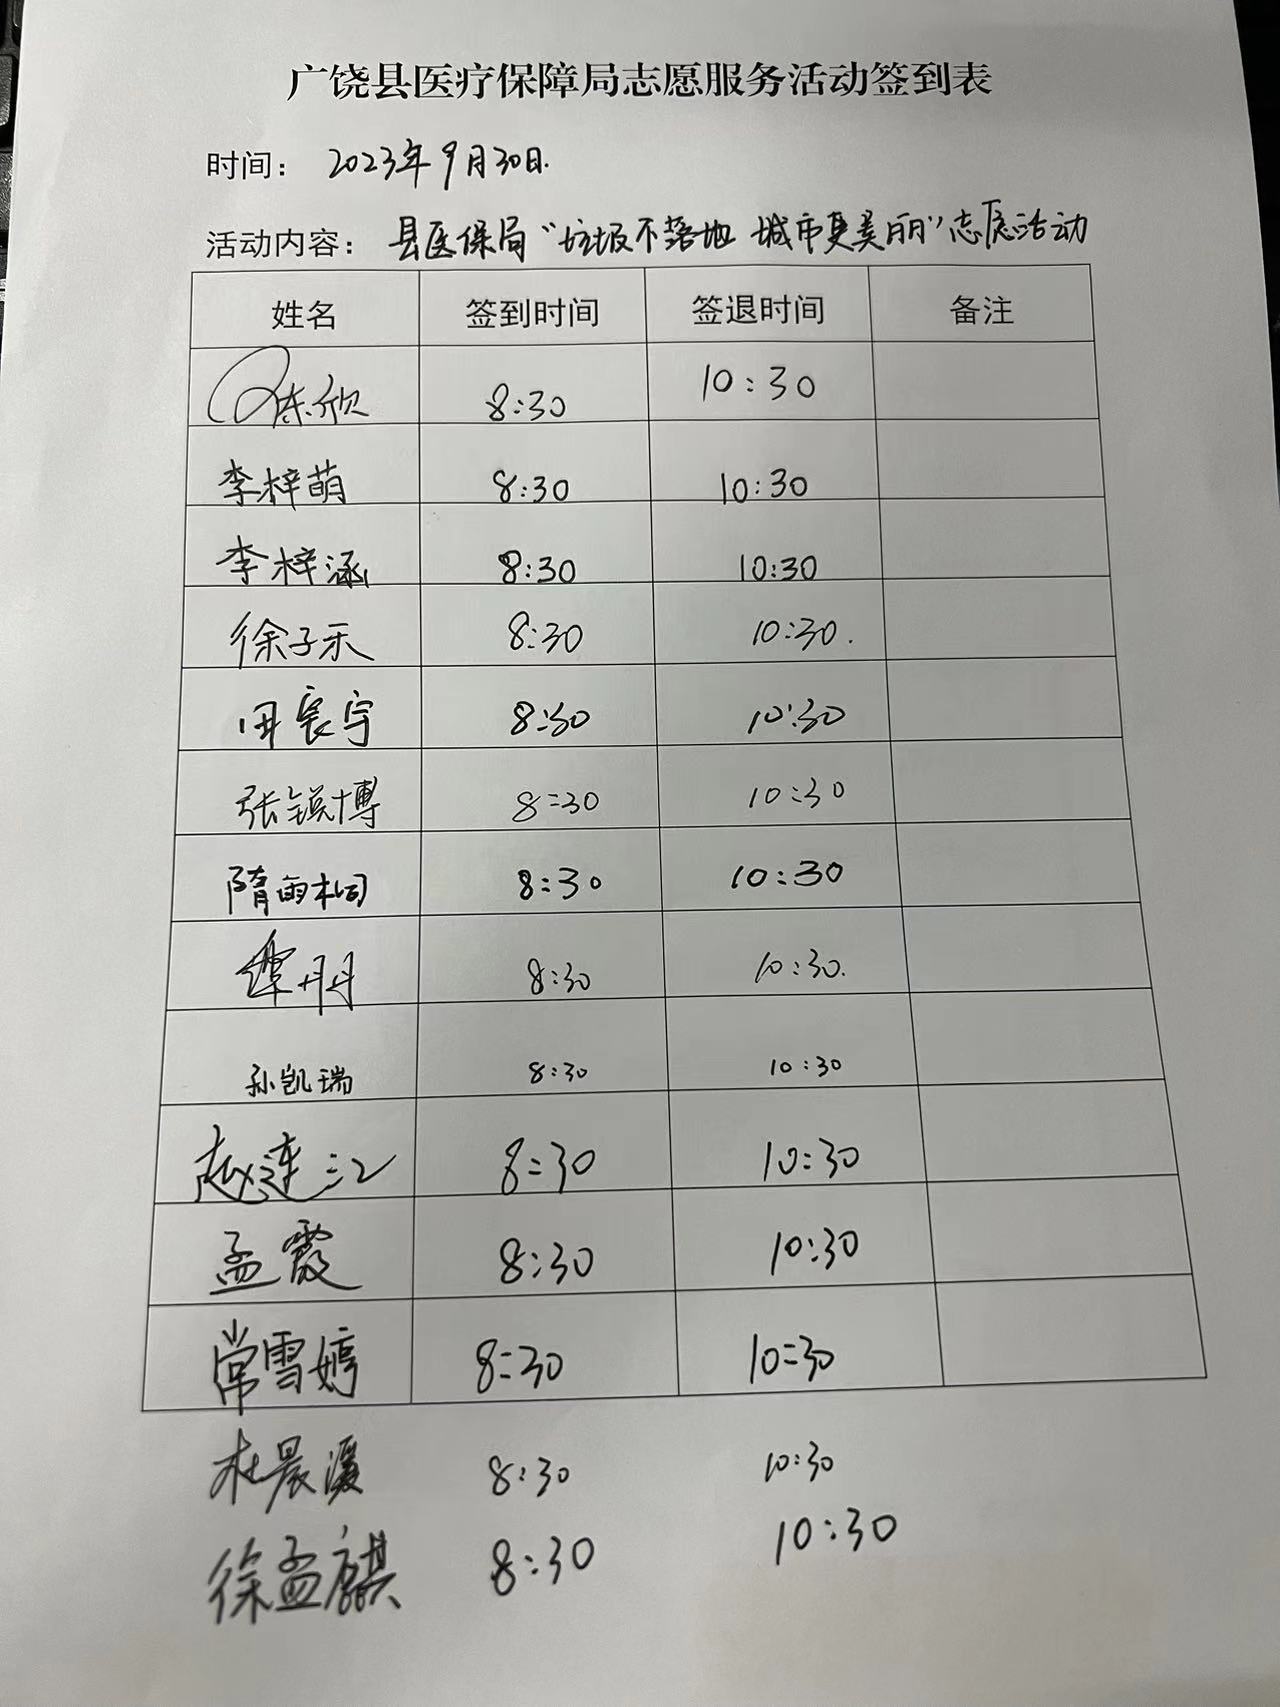 广饶县医疗保障局志愿服务活动签到表
时间： 2023年9月30日.
活动内容： 县医保局“垃圾不落地 城市更美丽”志愿活动
姓名 签到时间 签退时间 备注
陈欣 8:30 10:30
李梓萌 8:30 10:30
李梓涵 8:30 10:30
徐子禾 8:30 10:30.
田宸宇 8:30 10:30
张镁博 8:30 10:30
隋雨桐 8:30 10:30
丹丹 8:30 10:30.
孙凯瑞 8:30 10:30
赵连江 8:30 10:30
孟霞 8:30 10:30
常雪婷 8:30 10:30
杜晨 8:30 10:30
徐孟麒 8:30 10:30